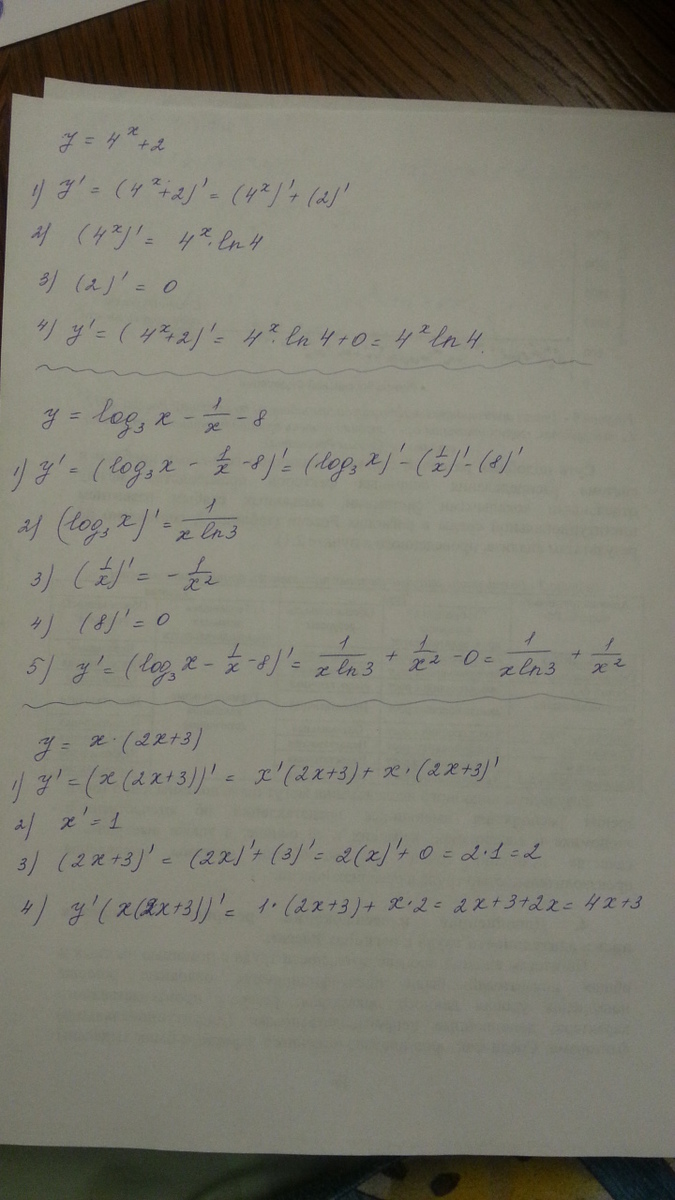 y = 4^x + 2
1) y' = (4^x + 2)' = (4^x)' + (2)'
2) (4^x)' = 4^x · ln 4
3) (2)' = 0
4) y' = (4^x + 2)' = 4^x · ln 4 + 0 = 4^x ln 4.
y = log₃ x - 1/x - 8
1) y' = (log₃ x - 1/x - 8)' = (log₃ x)' - (1/x)' - (8)'
2) (log₃ x)' = 1/(x ln 3)
3) (1/x)' = - 1/x²
4) (8)' = 0
5) y' = (log₃ x - 1/x - 8)' = 1/(x ln 3) + 1/x² - 0 = 1/(x ln 3) + 1/x²
y = x · (2x+3)
1) y' = (x(2x+3))' = x'(2x+3) + x · (2x+3)'
2) x' = 1
3) (2x+3)' = (2x)' + (3)' = 2(x)' + 0 = 2·1 = 2
4) y'(x(2x+3))' = 1·(2x+3) + x·2 = 2x+3+2x = 4x+3